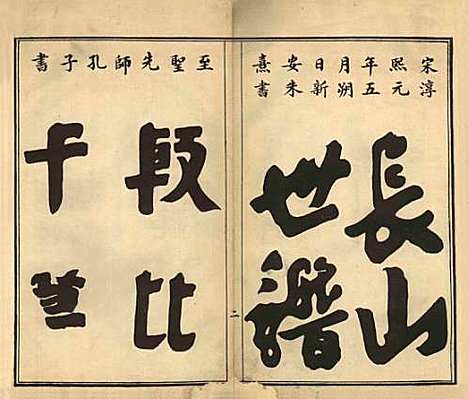 宋淳
熙元
年五
月朔
日新
安朱
熹書
長山
世譜
二
至聖先師孔子書
殷比
干